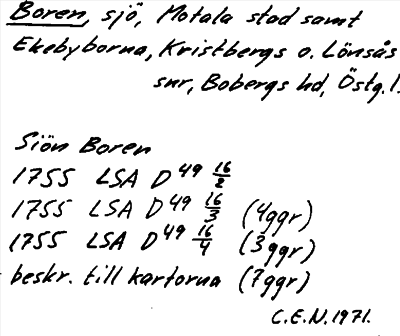 Boren, sjö, Motala stad samt
Ekebyborna, Kristbergs o. Lönsås
snr, Bobergs hd, Östg.l.
Sjön Boren
1755 LSA D49 16/2
1755 LSA D49 16/3 (4ggr)
1755 LSA D49 16/4 (3ggr)
beskr. till kartorna (7ggr)
C.E.N. 1971.